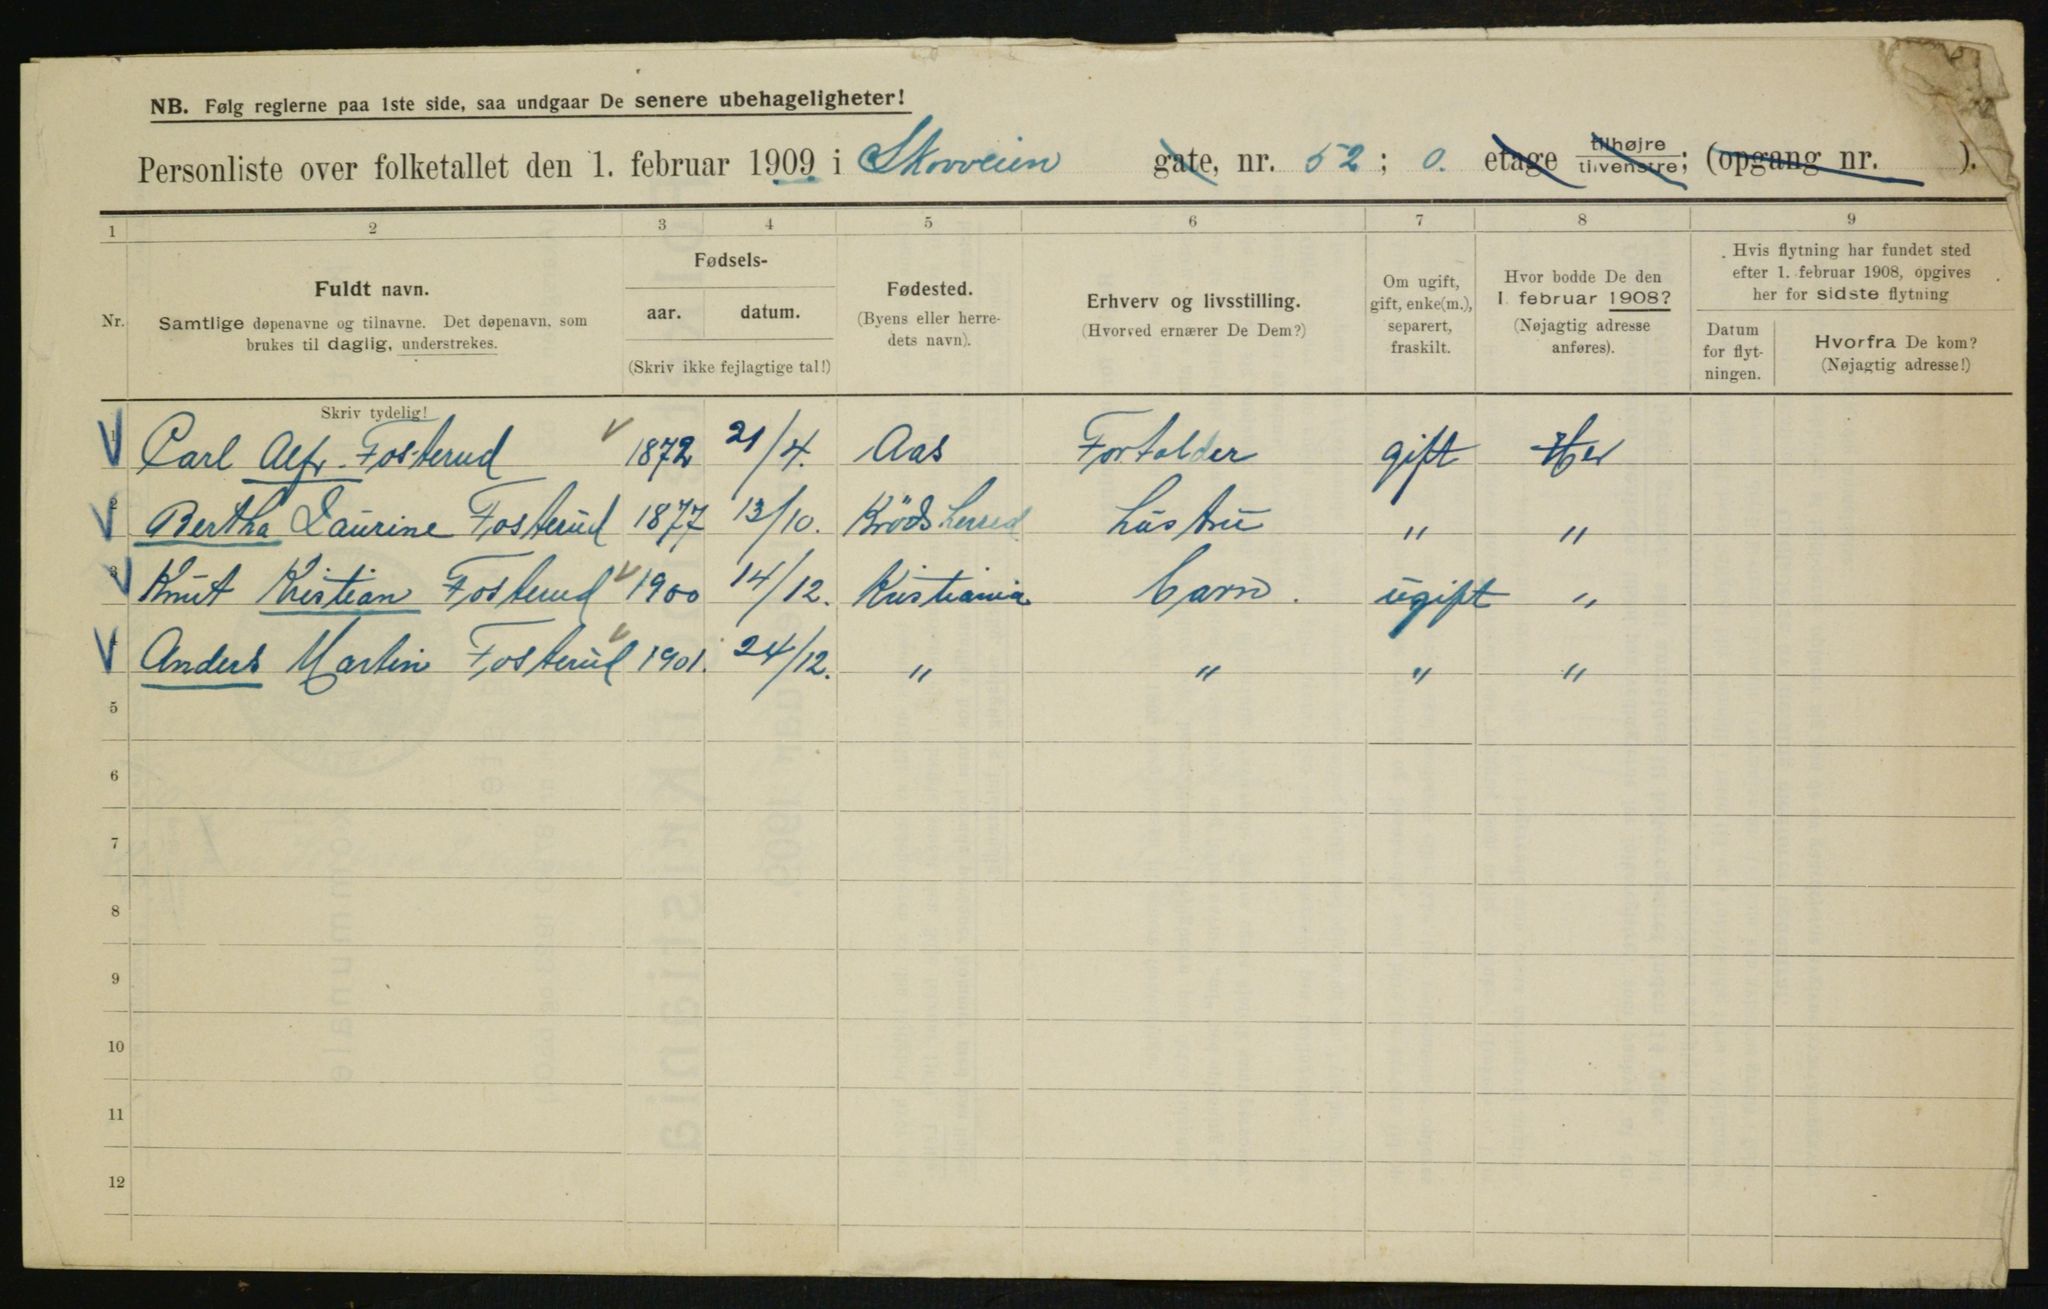 NB. Følg reglerne paa 1ste side, saa undgaar De senere ubehageligheter!
Personliste over folketallet den 1. februar 1909 i Skovveien gate, nr. 52; 0. etage tilhøjre tilvenstre; (opgang nr. ).
1 2 3 4 5 6 7 8 9
Nr.
Fuldt navn.
Samtlige døpenavne og tilnavne. Det døpenavn, som
brukes til daglig, understrekes.
Fødsels-
aar. datum.
(Skriv ikke fejlagtige tal!)
Fødested.
(Byens eller herre-
dets navn).
Erhverv og livsstilling.
(Hvorved ernærer De Dem?)
Om ugift,
gift, enke(m.),
separert,
fraskilt.
Hvor bodde De den
1. februar 1908?
(Nøjagtig adresse
anføres).
Hvis flytning har fundet sted
efter 1. februar 1908, opgives
her for sidste flytning
Datum
for flyt-
ningen.
Hvorfra De kom?
(Nøjagtig adresse!)
Skriv tydelig!
1 Carl Alfr. Fosterud 1872 21/4. Aas Fortolder gift Her
2 Bertha Laurine Fosterud 1877 13/10. Krödsherred hustru " "
3 Knut Kristian Fosterud 1900 14/12. Kristiania barn. ugift "
4 Anders Martin Fosterud 1901. 24/12. " " " "
5
6
7
8
9
10
11
12